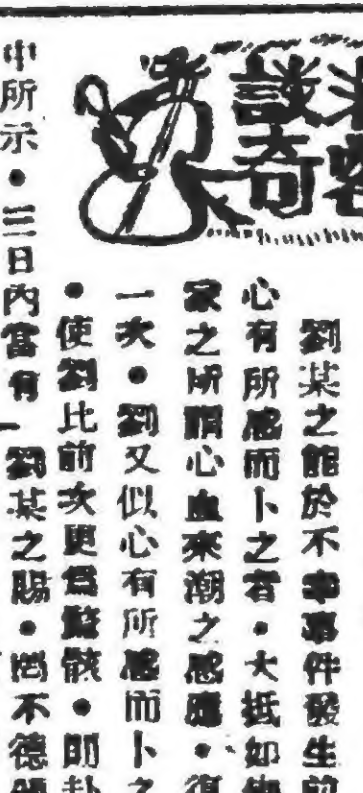 談奇
劉某之能於不幸事件發生前
心有所感而卜之者●大抵如術
家之所謂心血來潮之感應●復
一次●劉又似心有所感而卜之
●使劉比前次更爲驚駭●卽卦
中所示●三日內當有
劉某之賜●罔不德